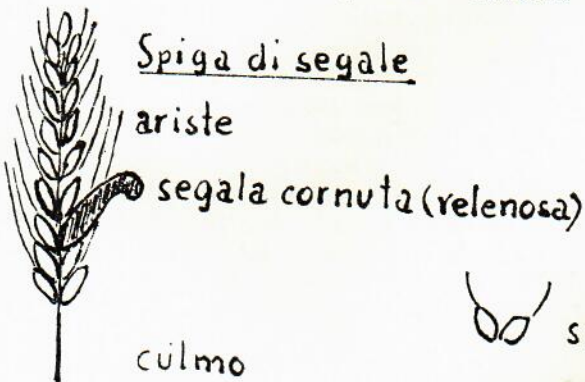 Spiga di segale
ariste
segala cornuta (velenosa)
s
culmo